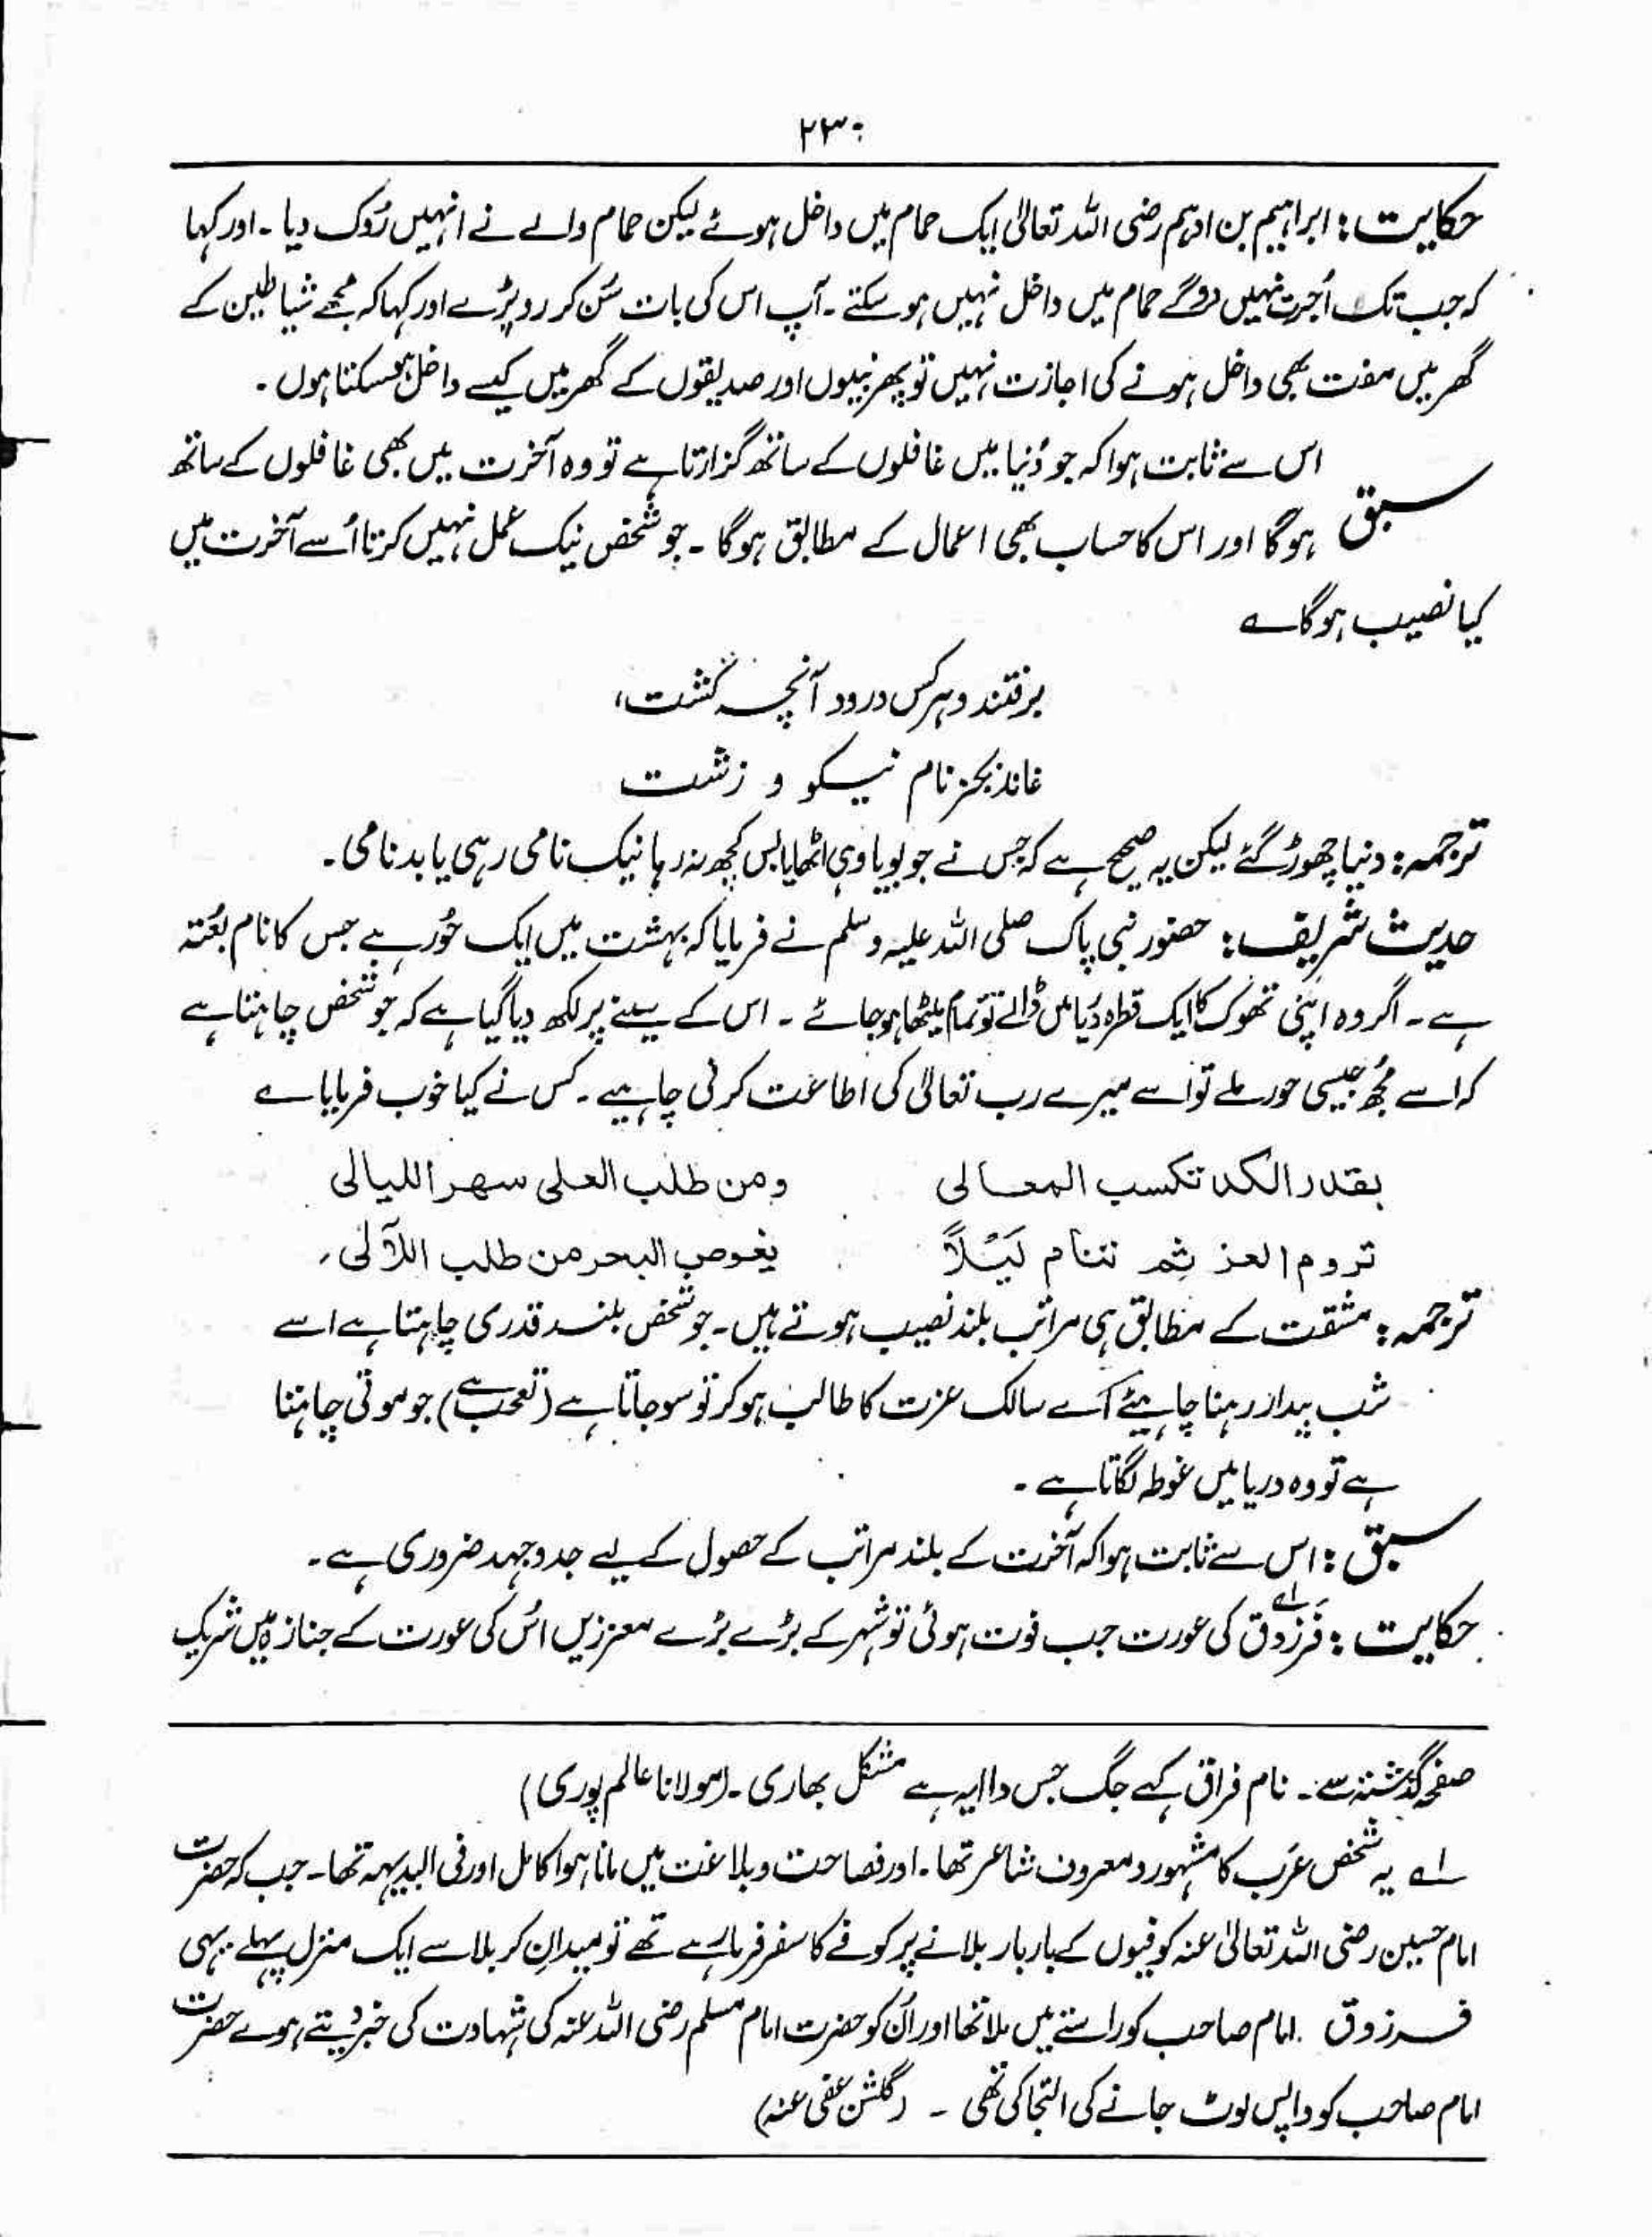 ۲۳۰
حکایت : ابراہیم بن ادہم رضی اللہ تعالیٰ ایک حمام میں داخل ہوئے لیکن حمام والے نے انہیں رُوک دیا ۔ اور کہا
کہ جب تک اُجرت نہیں دوگے حمام میں داخل نہیں ہو سکتے ۔ آپ اس کی بات سُن کر رو پڑے اور کہا کہ مجھے شیاطین کے
گھر میں مفت بھی داخل ہونے کی اجازت نہیں تو پھر نبیوں اور صدیقوں کے گھر میں کیسے داخل ہو سکتا ہوں ۔
سبق اس سے ثابت ہوا کہ جو دُنیا میں غافلوں کے ساتھ گزارتا ہے تو وہ آخرت میں بھی غافلوں کے ساتھ
ہوگا اور اس کا حساب بھی اعمال کے مطابق ہوگا ۔ جو شخص نیک عمل نہیں کرتا اُسے آخرت میں
کیا نصیب ہوگا ے
برفتند و ہرکس درود آنچہ کشت،
نماند بجز نام نیکو و زشت
ترجمہ : دنیا چھوڑ گئے لیکن یہ صحیح ہے کہ جس نے جو بویا وہی اٹھایا بس کچھ نہ رہا نیک نامی رہی یا بدنامی ۔
حدیث شریف : حضور نبی پاک صلی اللہ علیہ وسلم نے فرمایا کہ بہشت میں ایک حُور ہے جس کا نام بعُتہ
ہے ۔ اگر وہ اپنی تھوک کا ایک قطرہ دُنیا میں ڈالے تو تمام میٹھا ہو جائے ۔ اس کے سینے پر لکھ دیا گیا ہے کہ جو شخص چاہتا ہے
کہ اسے مجُھ جیسی حور ملے تو اسے میرے رب تعالیٰ کی اطاعت کرنی چاہیے ۔ کس نے کیا خوب فرمایا ے
بقدر الکد تکسب المعالی ومن طلب العلی سھر اللیالی
تروم العز ثم تنام لَیْلاً یغوص البحر من طلب اللآلی،
ترجمہ : مشقت کے مطابق ہی مراتب بلند نصیب ہوتے ہیں ۔ جو شخص بلند قدری چاہتا ہے اسے
شب بیدار رہنا چاہیئے اے سالک عزت کا طالب ہو کر تو سو جاتا ہے (تعجب ہے) جو موتی چاہتا
ہے تو وہ دریا میں غوطہ لگاتا ہے ۔
سبق : اس سے ثابت ہوا کہ آخرت کے بلند مراتب کے حصول کے لیے جدوجہد ضروری ہے ۔
حکایت : فَرَزدق لے کی عورت جب فوت ہوئی تو شہر کے بڑے بڑے معززین اسُ کی عورت کے جنازہ میں شریک
صفحہ گذشتہ سے ۔ نام فراق کہے جگ جس دا ایہ ہے مشکل بھاری ۔ (مولانا عالم پوری)
لے یہ شخص عَرب کا مشہور و معروف شاعر تھا ۔ اور فصاحت و بلاغت میں مانا ہوا کامل اور فی البدیہہ تھا ۔ جب کہ حضرت
امام حسین رضی اللہ تعالیٰ عنہ کوفیوں کے بار بار بلانے پر کوفے کا سفر فرما رہے تھے تو میدانِ کربلا سے ایک منزل پہلے یہی
فرزوق امام صاحب کو راستے میں ملا تھا اور اُن کو حضرت امام مسلم رضی اللہ عنہ کی شہادت کی خبر دیتے ہوے حضرت
امام صاحب کو واپس لوٹ جانے کی التجا کی تھی ۔ (گلشن عفی عنہ)